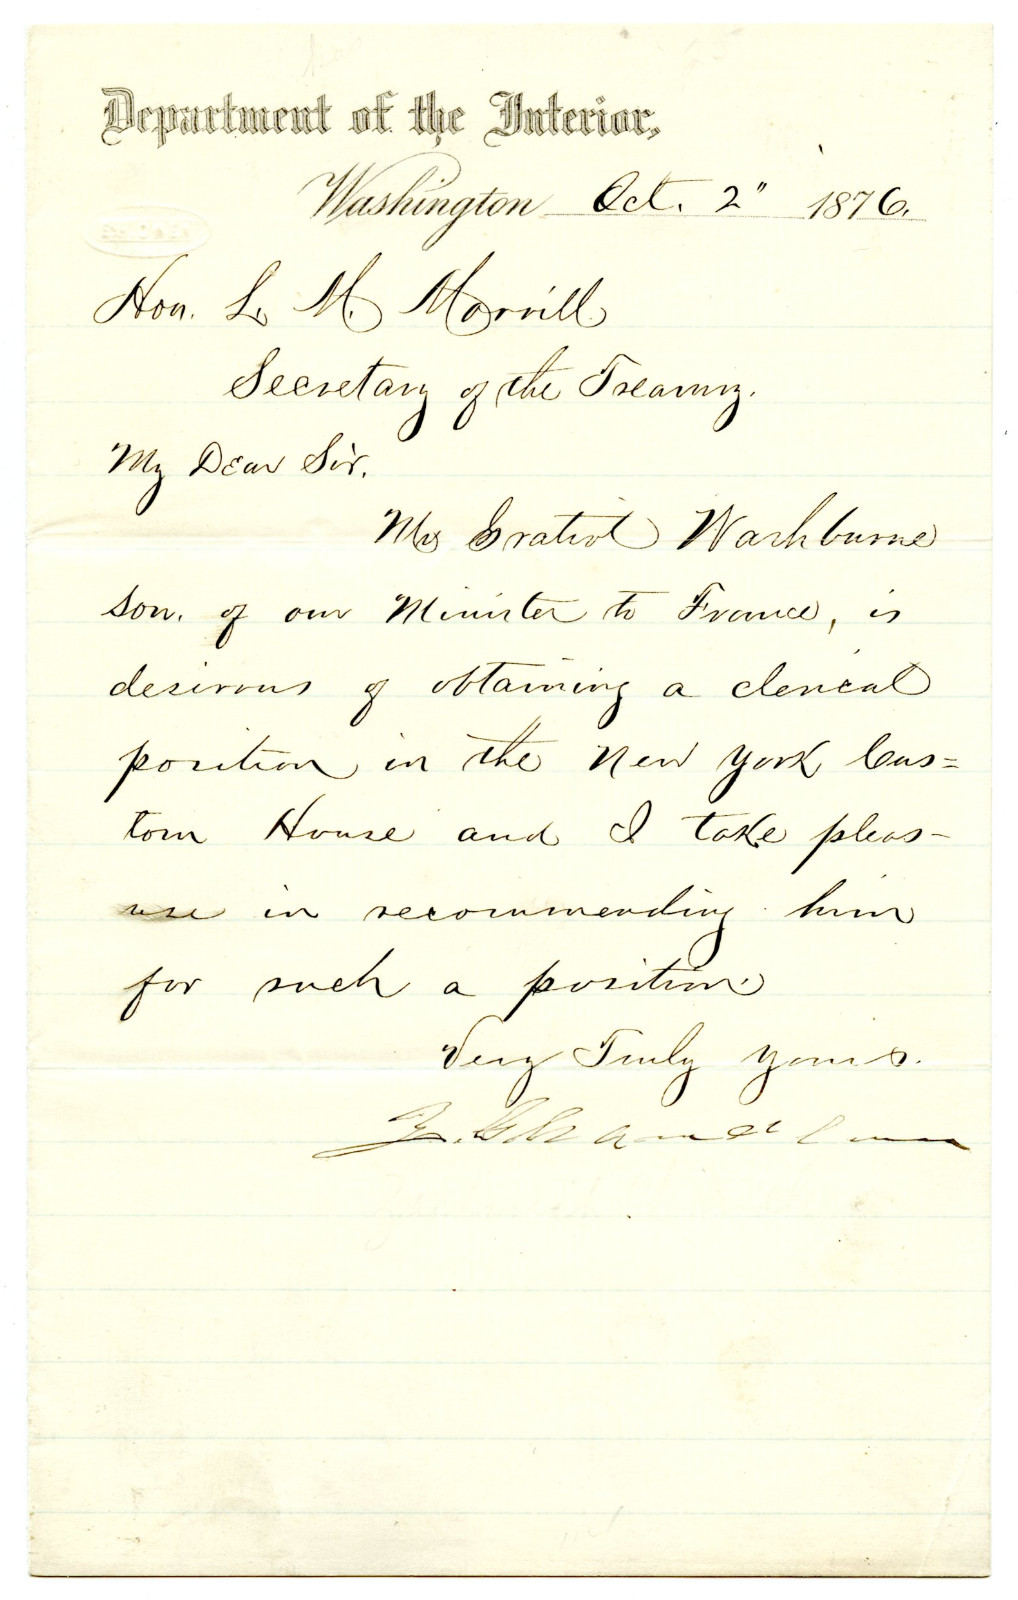 Department of the Interior,
Washington Oct. 2" 1876.
Hon. L. M. Morrill
Secretary of the Treasury.
My Dear Sir.
Mr Gratiot Washburne
son. of our Minister to France, is
desirous of obtaining a clerical
position in the New York Cus=
tom House and I take pleas-
ure in recommending him
for such a position.
Very Truly yours.
Z. Chandler